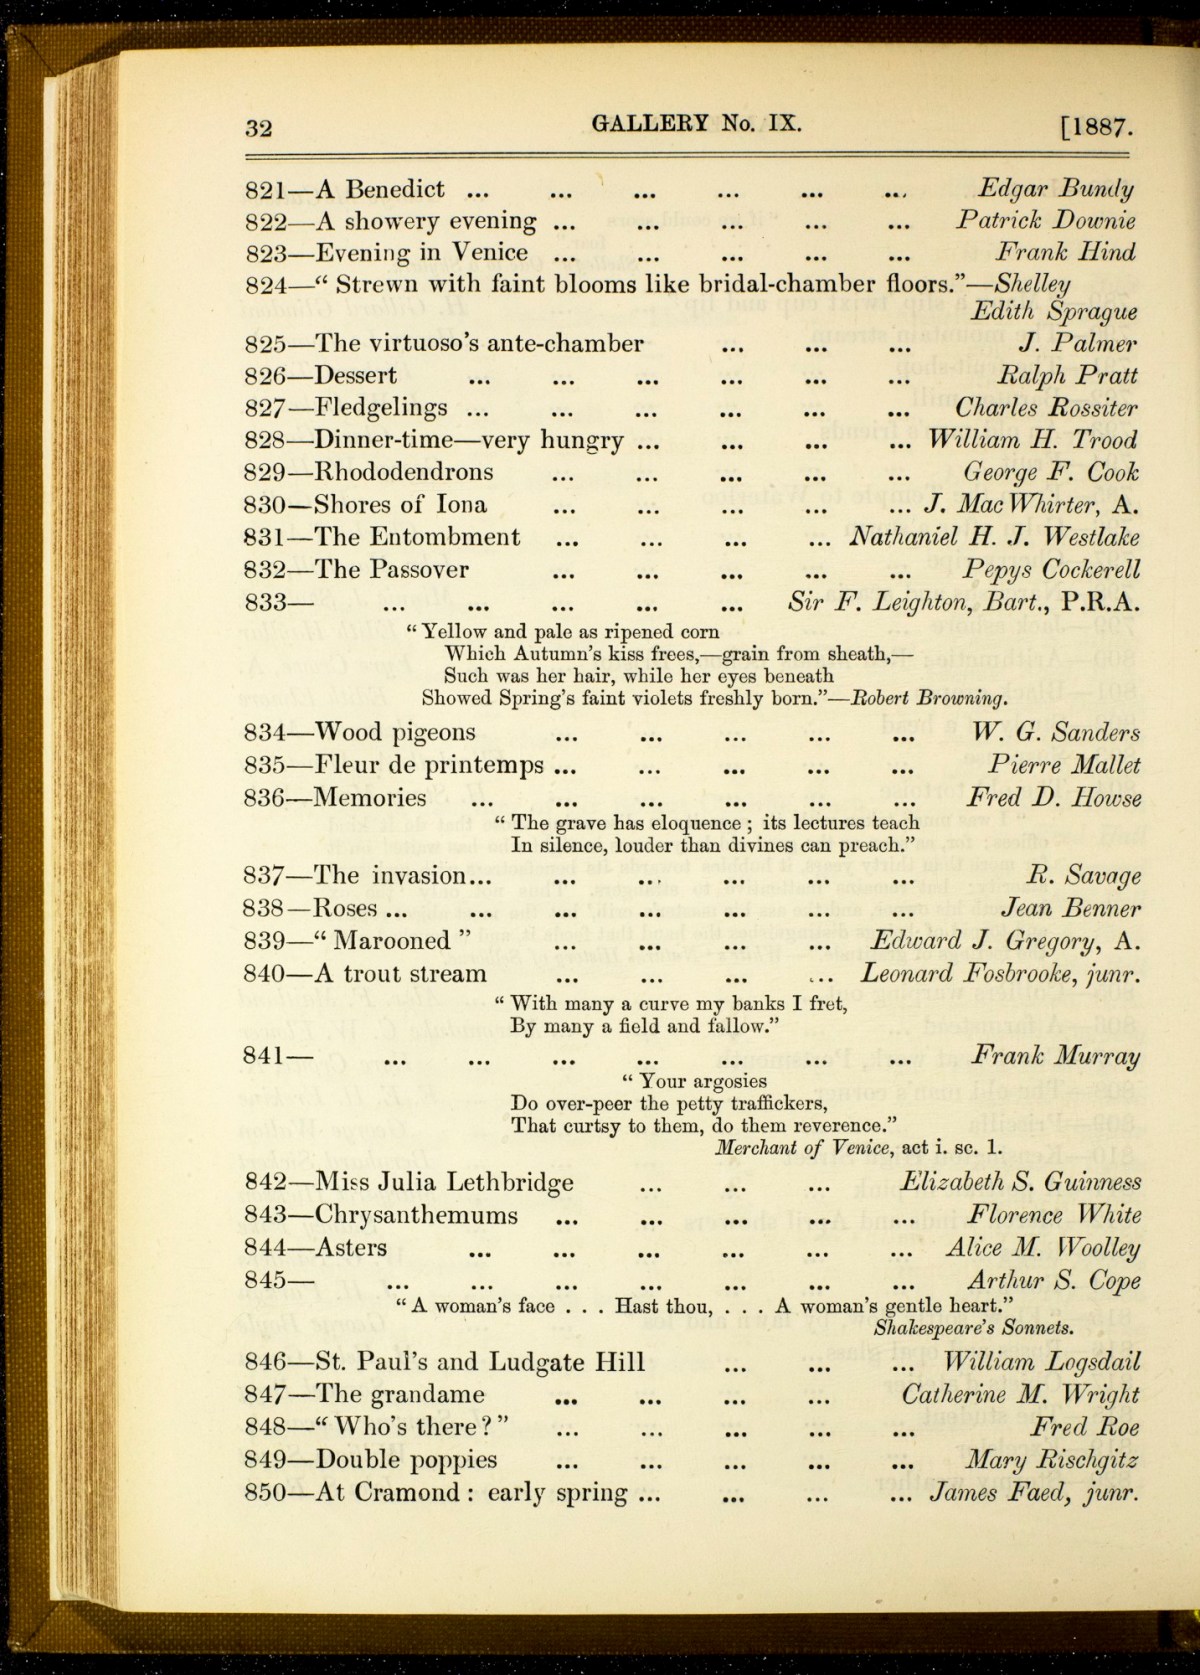 32 GALLERY No. IX. [1887.
821—A Benedict ... ... ... ... ... ... Edgar Bundy
822—A showery evening ... ... ... ... ... Patrick Downie
823—Evening in Venice ... ... ... ... ... Frank Hind
824—“ Strewn with faint blooms like bridal-chamber floors.”—Shelley
Edith Sprague
825—The virtuoso’s ante-chamber ... ... ... J. Palmer
826—Dessert ... ... ... ... ... ... Ralph Pratt
827—Fledgelings ... ... ... ... ... ... Charles Rossiter
828—Dinner-time—very hungry ... ... ... ... William H. Trood
829—Rhododendrons ... ... ... ... ... George F. Cook
830—Shores of Iona ... ... ... ... ... J. MacWhirter, A.
831—The Entombment ... ... ... ... Nathaniel H. J. Westlake
832—The Passover ... ... ... ... ... Pepys Cockerell
833— ... ... ... ... ... Sir F. Leighton, Bart., P.R.A.
“ Yellow and pale as ripened corn
Which Autumn’s kiss frees,—grain from sheath,—
Such was her hair, while her eyes beneath
Showed Spring’s faint violets freshly born.”—Robert Browning.
834—Wood pigeons ... ... ... ... ... W. G. Sanders
835—Fleur de printemps ... ... ... ... ... Pierre Mallet
836—Memories ... ... ... ... ... ... Fred D. Howse
“ The grave has eloquence ; its lectures teach
In silence, louder than divines can preach.”
837—The invasion... ... ... ... ... ... R. Savage
838—Roses ... ... ... ... ... ... ... Jean Benner
839—“ Marooned ” ... ... ... ... Edward J. Gregory, A.
840—A trout stream ... ... ... ... Leonard Fosbrooke, junr.
“ With many a curve my banks I fret,
By many a field and fallow.”
841— ... ... ... ... ... ... ... Frank Murray
“ Your argosies
Do over-peer the petty traffickers,
That curtsy to them, do them reverence.”
Merchant of Venice, act i. sc. 1.
842—Miss Julia Lethbridge ... ... ... Elizabeth S. Guinness
843—Chrysanthemums ... ... ... ... ... Florence White
844—Asters ... ... ... ... ... ... Alice M. Woolley
845— ... ... ... ... ... ... ... Arthur S. Cope
“ A woman’s face . . . Hast thou, . . . A woman’s gentle heart.”
Shakespeare’s Sonnets.
846—St. Paul’s and Ludgate Hill ... ... ... William Logsdail
847—The grandame ... ... ... ... Catherine M. Wright
848—“ Who’s there ? ” ... ... ... ... ... Fred Roe
849—Double poppies ... ... ... ... ... Mary Rischgitz
850—At Cramond : early spring ... ... ... ... James Faed, junr.